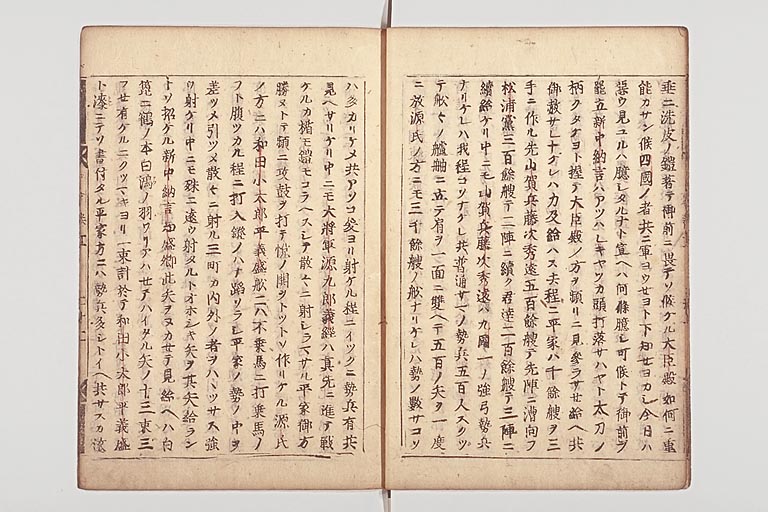 垂ニ洗皮ノ鎧着テ御前ニ畏テソ候ケル大臣殿如何ニ重
能カサン候四國ノ者共ニ軍ヨウせヨト下知せヨカシ今日ハ
惡ウ見ユルハ臆シタルナト宣ヘハ何條臆シ可候トテ御前ヲ
罷立新中納言ハアツハレキヤツカ頭打落サハヤト太刀ノ
柄クタケヨト握テ大臣殿ノ方ヲ頻リニ見參ラサせ給ヘ共
御赦サレナケレハ力及給ハス去程ニ平家ハ千餘艘ヲ三
手ニ作ル先山賀兵藤次秀遠五百餘艘テ先陣ニ漕向フ
松浦黨三百餘艘テ二陣ニ續ク君達二百餘艘テ三陣ニ
續給ケリ中ニモ山賀兵藤次秀遠ハ九國一ノ強弓勢兵
ナリケレハ我程コソナケレ共普通サマノ勢兵五百人スクツ
テ舩々ノ艫舳ニ立テ肩ヲ一面ニ雙ヘテ五百ノ矢ヲ一度
ニ放源氏ノ方ニモ三千餘艘ノ舩ナリケレハ勢ノ數サコソ
ハ多カリケメ共アソコ爰ヨリ射ケル程ニイツクニ勢兵有共
見ヘサリケリ中ニモ大將軍源九郎義經ハ真先ニ進テ戰
ケルカ楯モ鎧モコラヘスシテ散々ニ射シラマサル平家御方
勝ヌトテ頻ニ攻鼓ヲ打テ悦ノ鬨ヲトツトソ作リケル源氏
ノ方ニハ和田小太郎平義盛舩ニハ不乗馬ニ打乗馬ノ
フト腹ツカル程ニ打入鐙ノハナ蹈ソラシ平家ノ勢ノ中ヲ
差ツメ引ツメ散々ニ射ル三町カ内外ノ者ヲハハツサス強
ウ射ケリ中ニモ殊ニ遠ウ射タルトオホシキ矢ヲ其矢給ラン
トソ招ケル新中納言知盛卿此矢ヲヌカせテ見給ヘハ白
篦ニ鶴ノ本白鴻ノ羽ワリアハせテハイタル矢ノ十三束三
フせ有ケルニクツマキヨリ一束計於テ和田小太郎平義盛
ト漆ニテソ書付タル平家方ニハ勢兵多シトイヘ共サスカ遠